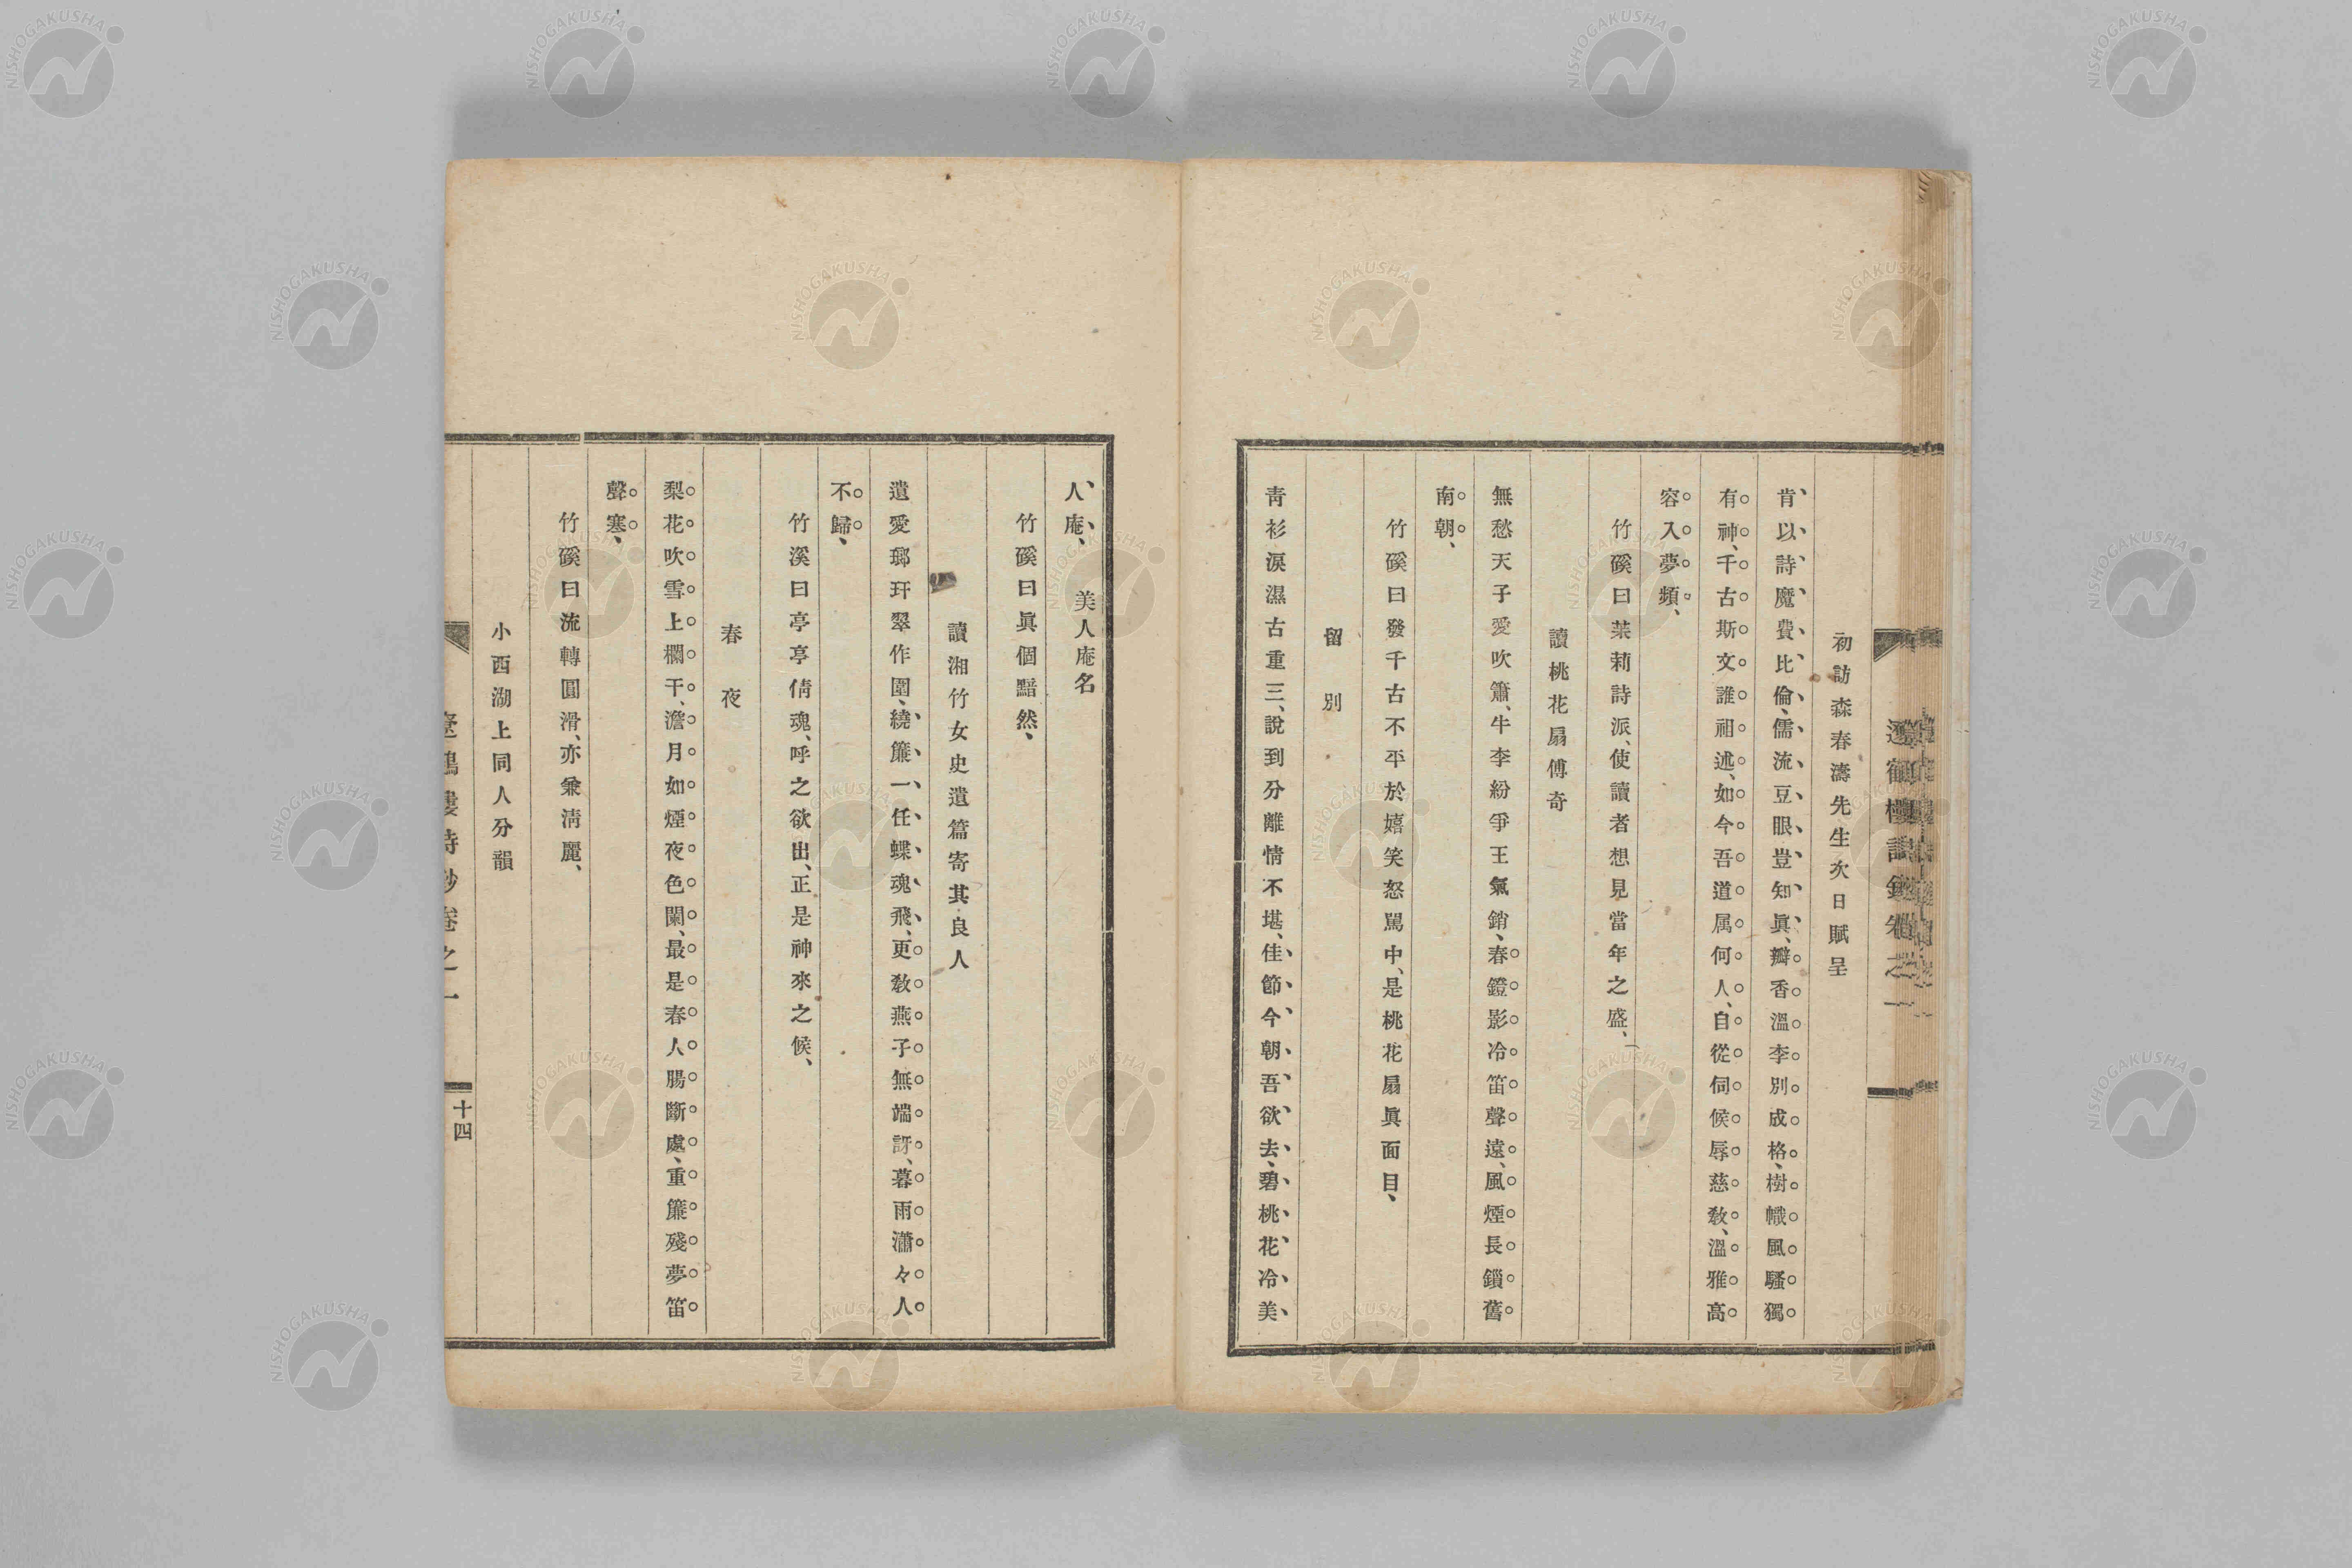 初訪森春濤先生次日賦呈
肯以詩魔費比倫、儒流豆眼豈知眞、瓣香溫李別成格、樹幟風騷獨
有神、千古斯文誰祖述、如今吾道属何人、自從伺候辱慈敎、溫雅高
容入夢頻、
竹磎曰茉莉詩派、使讀者想見當年之盛、
讀桃花扇傅奇
無愁天子愛吹簫、牛李紛爭王氣銷、春鐙影冷笛聲遠、風煙長鎖舊
南朝、
竹磎曰發千古不平於嬉笑怒罵中、是桃花扇眞面目、
留別
靑衫淚濕古重三、說到分離情不堪、佳節今朝吾欲去、碧桃花冷美
人庵、美人庵名
竹磎曰眞個黯然、
讀湘竹女史遺篇寄其良人
遺愛瑯玕翠作圍、繞簾一任蝶魂飛、更敎燕子無端訝、暮雨瀟々人
不歸、
竹溪曰亭亭倩魂、呼之欲出、正是神來之候、
春夜
梨花吹雪上欄干、澹月如煙夜色闌、最是春人腸斷處、重簾殘夢笛
聲寒、
竹磎曰流轉圓滑、亦兼淸麗、
小西湖上同人分韻
十四
NISHOGAKUSHA